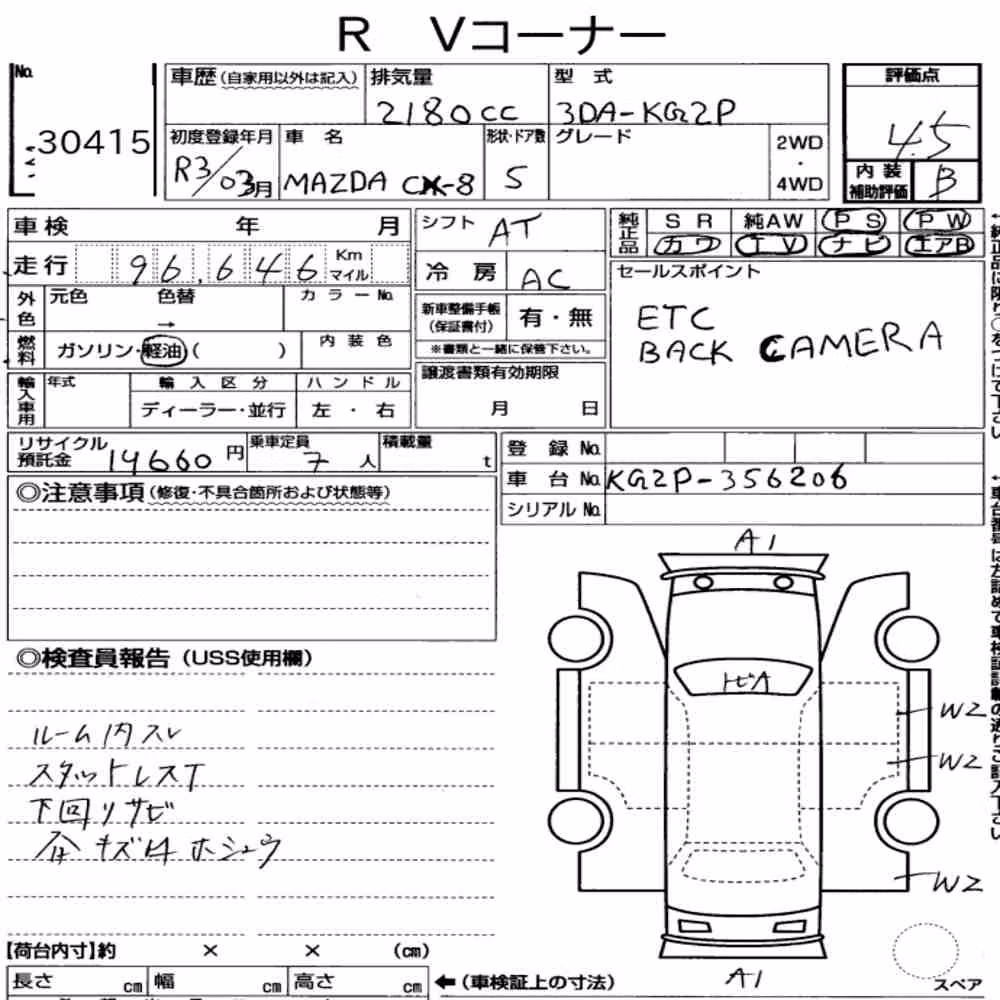 R Vコーナー
No. 30415
車歴(自家用以外は記入) 排気量 2180cc 型式 3DA-KG2P
初度登録年月 R3/03月 車名 MAZDA CX-8 形状・ドア数 5 グレード 2WD・4WD
評価点 4.5
内装補助評価 B
車検 年 月
走行 96,646 Km マイル
外色 元色 色替 → カラーNo.
燃料 ガソリン・軽油( ) 内装色
輸入車用 年式 輸入区分 ハンドル
ディーラー・並行 左・右
シフト AT
冷房 AC
新車整備手帳(保証書付) 有・無
※書類と一緒に保管下さい。
譲渡書類有効期限
月 日
純正品 SR 純AW PS PW
カワ TV ナビ エアB
セールスポイント
ETC
BACK CAMERA
リサイクル預託金 14660円 乗車定員 7人 積載量 t
登録No.
車台No. KG2P-356206
シリアルNo.
◎注意事項(修復・不具合箇所および状態等)
◎検査員報告(USS使用欄)
ルーム内スレ
スタットレスT
下回リサビ
キズ
ホシュウ
A1
トビA
W2
W2
W2
A1
スペア
【荷台内寸】約 × × (cm)
長さ cm 幅 cm 高さ cm ←(車検証上の寸法)